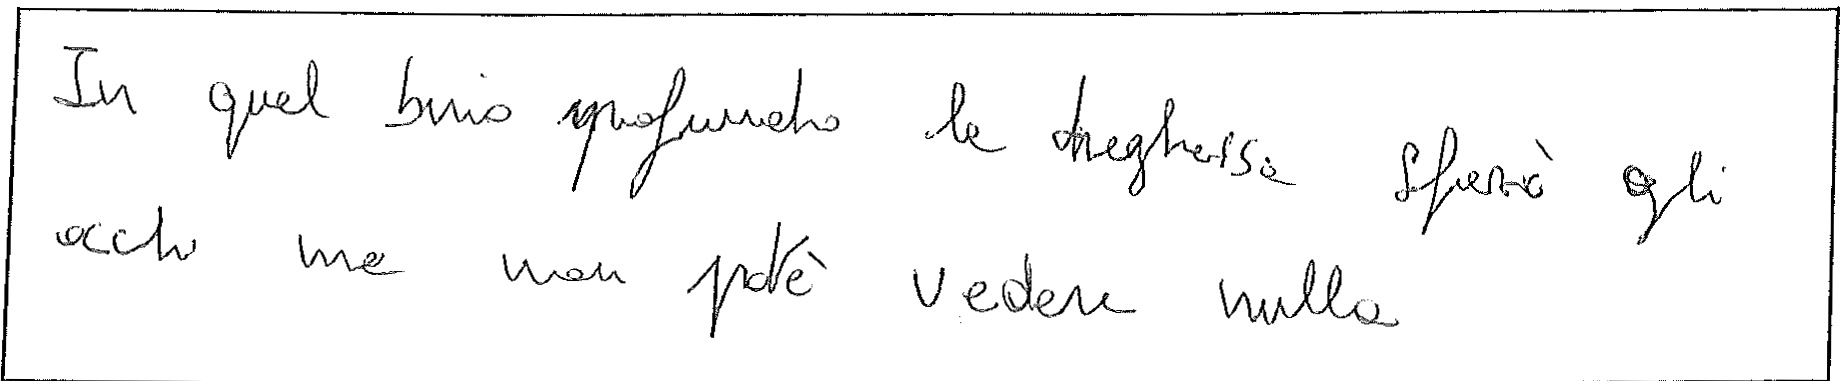 In quel buio profundo la draghessa sforzò gli
occhi ma non potè vedere nulla